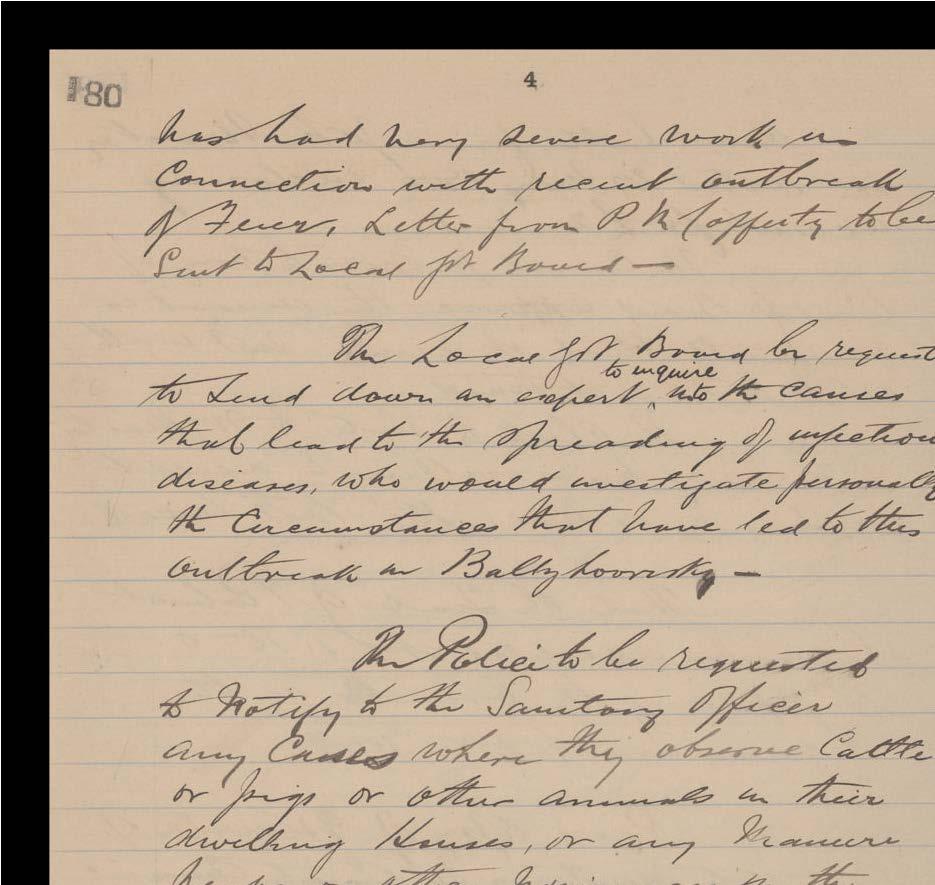 80
4
has had very severe work in
Connection with recent outbreak
of Fever, Letter from P McCafferty to be
Sent to Local Gvt Board —
The Local Gvt Board be request
to inquire
to send down an expert, into the causes
that lead to the spreading of infection
diseases, who would investigate personally
the Circumstances that have led to this
outbreak in
The Police to be requested
to Notify to the Sanitary Officer
any Cases where they observe Cattle
or pigs or other animals in their
dwelling Houses, or any Manure